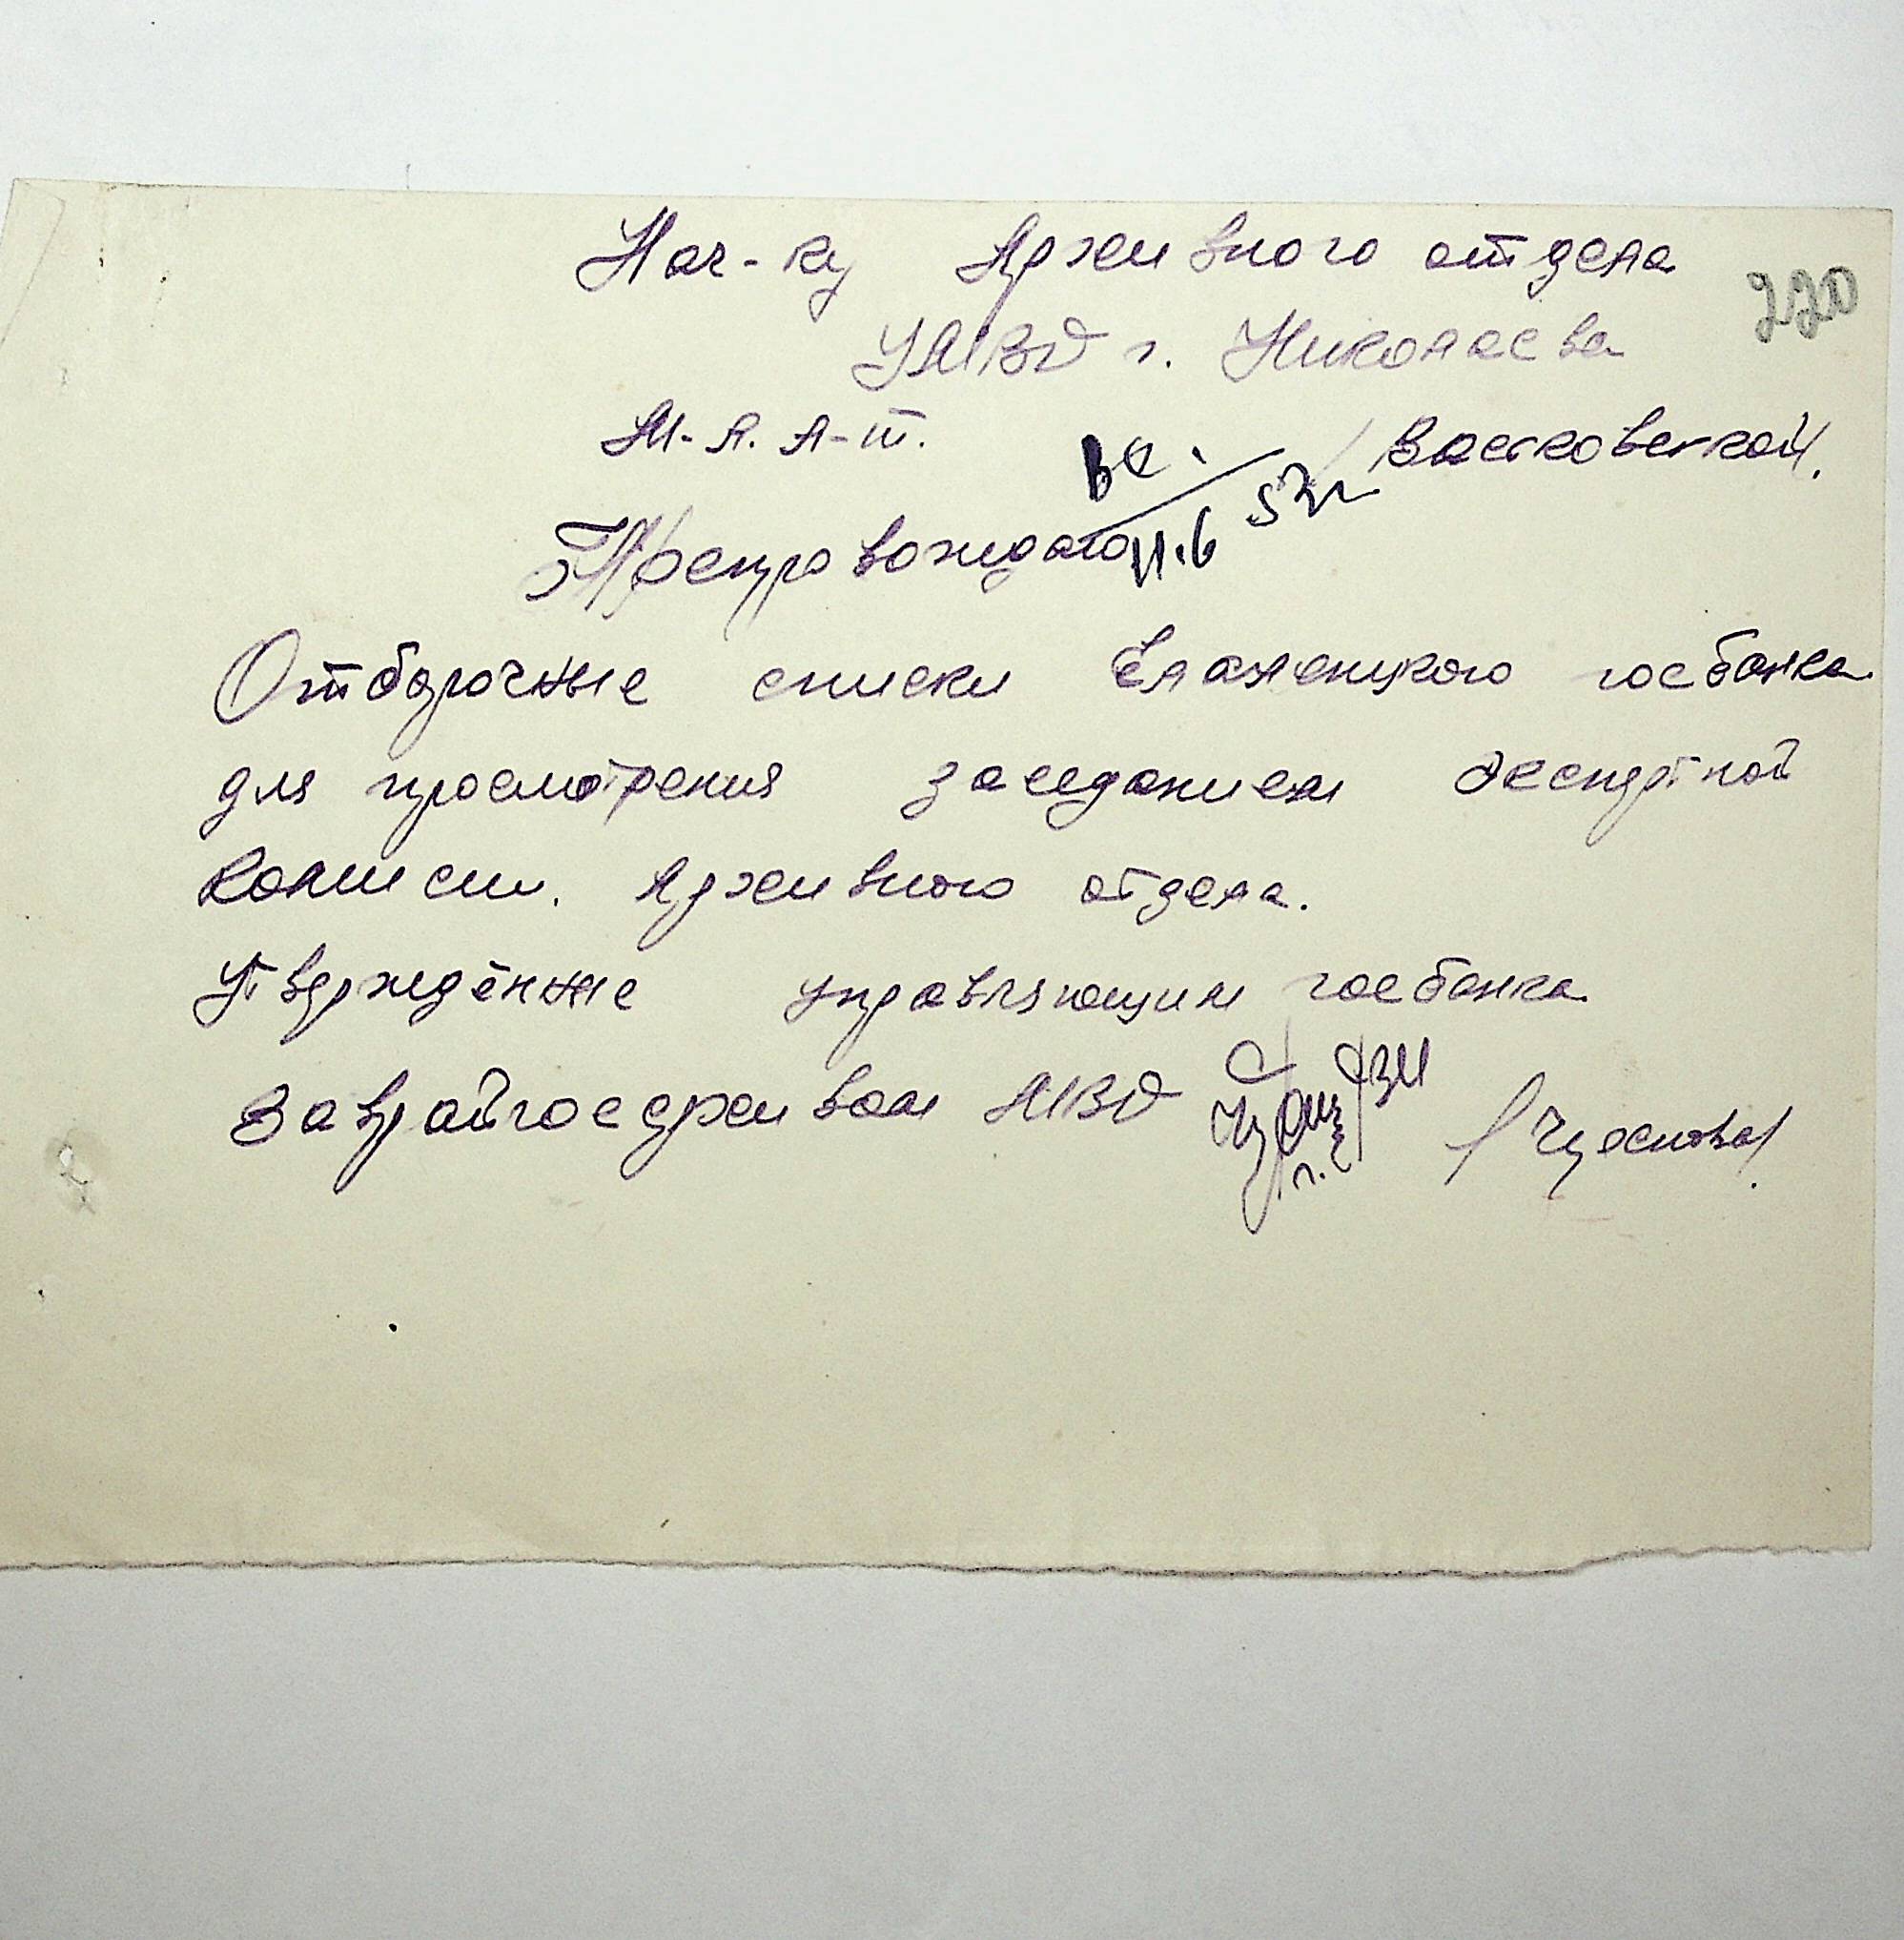 Нач-ку Архивного отдела
220
УМВД г. Николаева
М-л. л-т. Васковской.
11.6 53г
Препровождаю
Отборочные списки Еланецкого госбанка
для просмотрения заседанием экспертной
комисси. Архивного отдела.
Утверждённые управляющим госбанка
Зав райгосархивом МВД